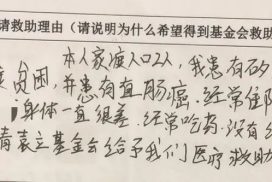 请救助理由（请说明为什么希望得到基金会救助
本人家庭人口2人，我患有矽
贫困，并患有直肠癌，经常住
身体一直很差，经常吃药，没有
袁立基金会给予我们医疗救助